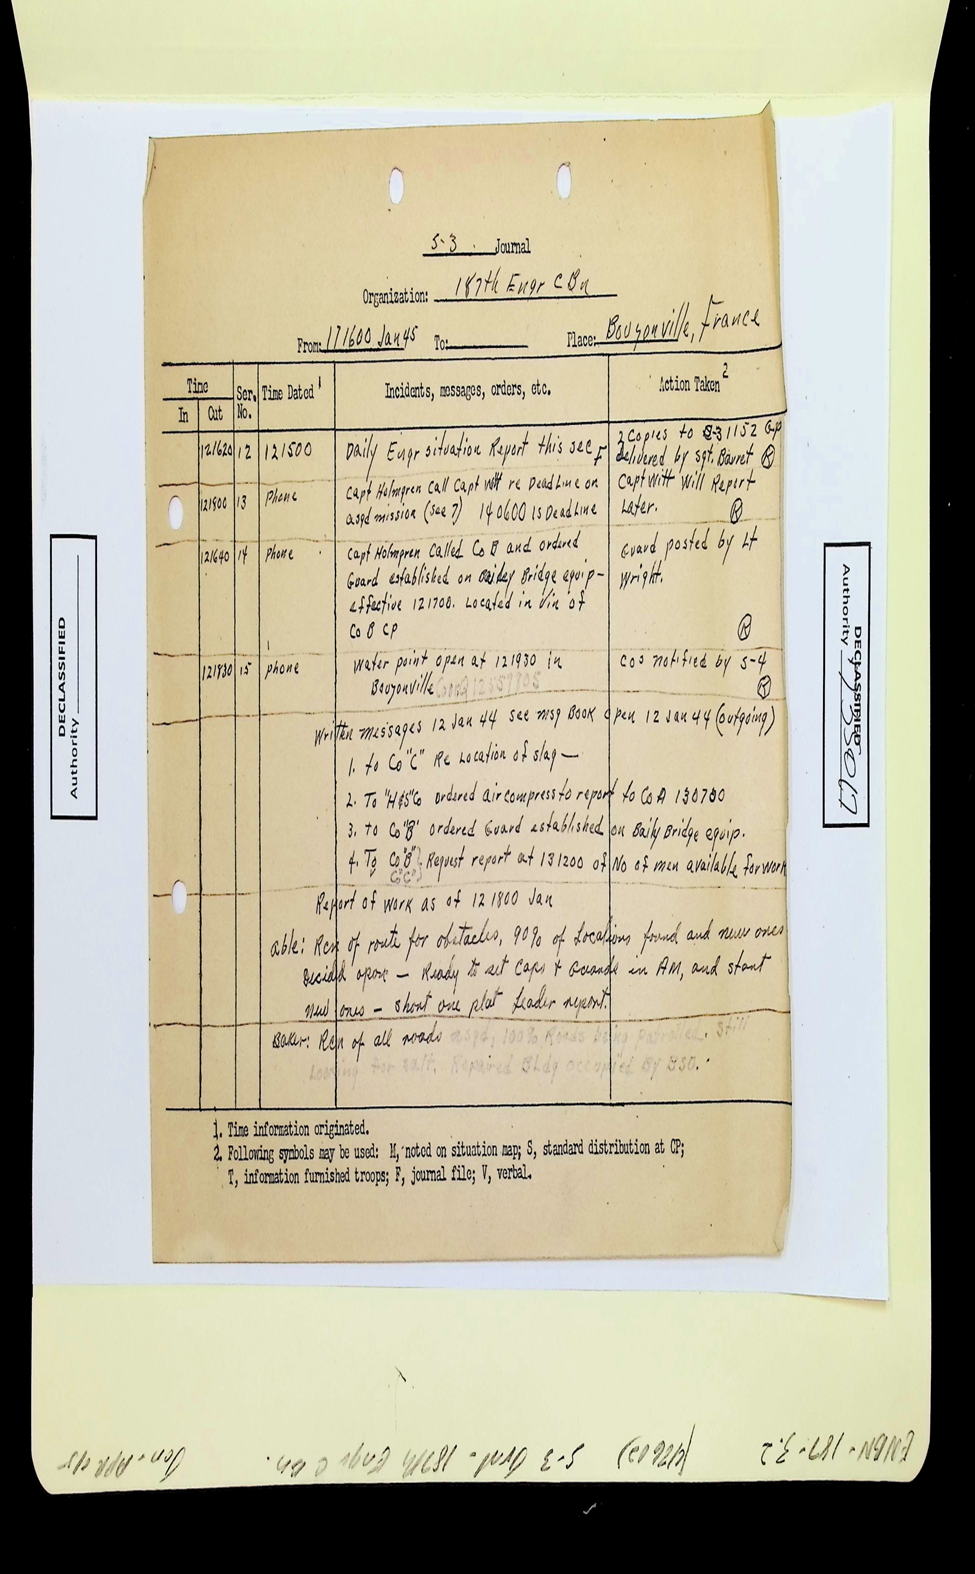 S-3 Journal
Organization: 187th Engr C Bn
From: 111600 Jan 45 To: Place: Bouzonville, France
Time Ser. No. Time Dated 1 Incidents, messages, orders, etc. Action Taken 2
In Out
121620 12 121500 Daily Engr situation Report this sec F 2 Copies to S-3 1152 Gp
delivered by sgt. (R)
121800 13 Phone Capt Holmgren Call Capt Witt re DeadLine on Capt Witt Will Report
asgd mission (see 7) 140600 Is DeadLine Later. (R)
121640 14 Phone Capt Holmgren Called Co B and ordered Guard posted by Lt
Guard established on Bailey Bridge equip- Wright.
effective 121700. Located in Vin of
Co B CP (R)
121830 15 phone Water point open at 121930 in Cos notified by S-4
Bouzonville (R)
Written messages 12 Jan 44 see msg Book open 12 Jan 44 (outgoing)
1. to Co "C" Re Location of slag —
2. To "H&S" Co ordered air compress to report to Co A 130700
3. to Co "B" ordered Guard established on Baily Bridge equip.
4. To Co "B" } Request report at 131200 of No of men available for work
Co "C" }
Report of Work as of 121800 Jan
able: Rcn of route for obstacles, 90% of Locations found and new ones
Decided upon — Ready to set Caps & Guards in AM, and start
new ones — short one plat leader report.
Baker: Rcn of all roads asgd, 100% Roads being patrolled. Still
Looking for salt. Repaired BLdg occupied By BSO.
1. Time information originated.
2. Following symbols may be used: M, noted on situation map; S, standard distribution at CP;
T, information furnished troops; F, journal file; V, verbal.
DECLASSIFIED
Authority
DECLASSIFIED
Authority 735017
ENBN-187-3.2 (21262) S-3 Jrnl - 187th Engr C Bn. Jan-Apr 45